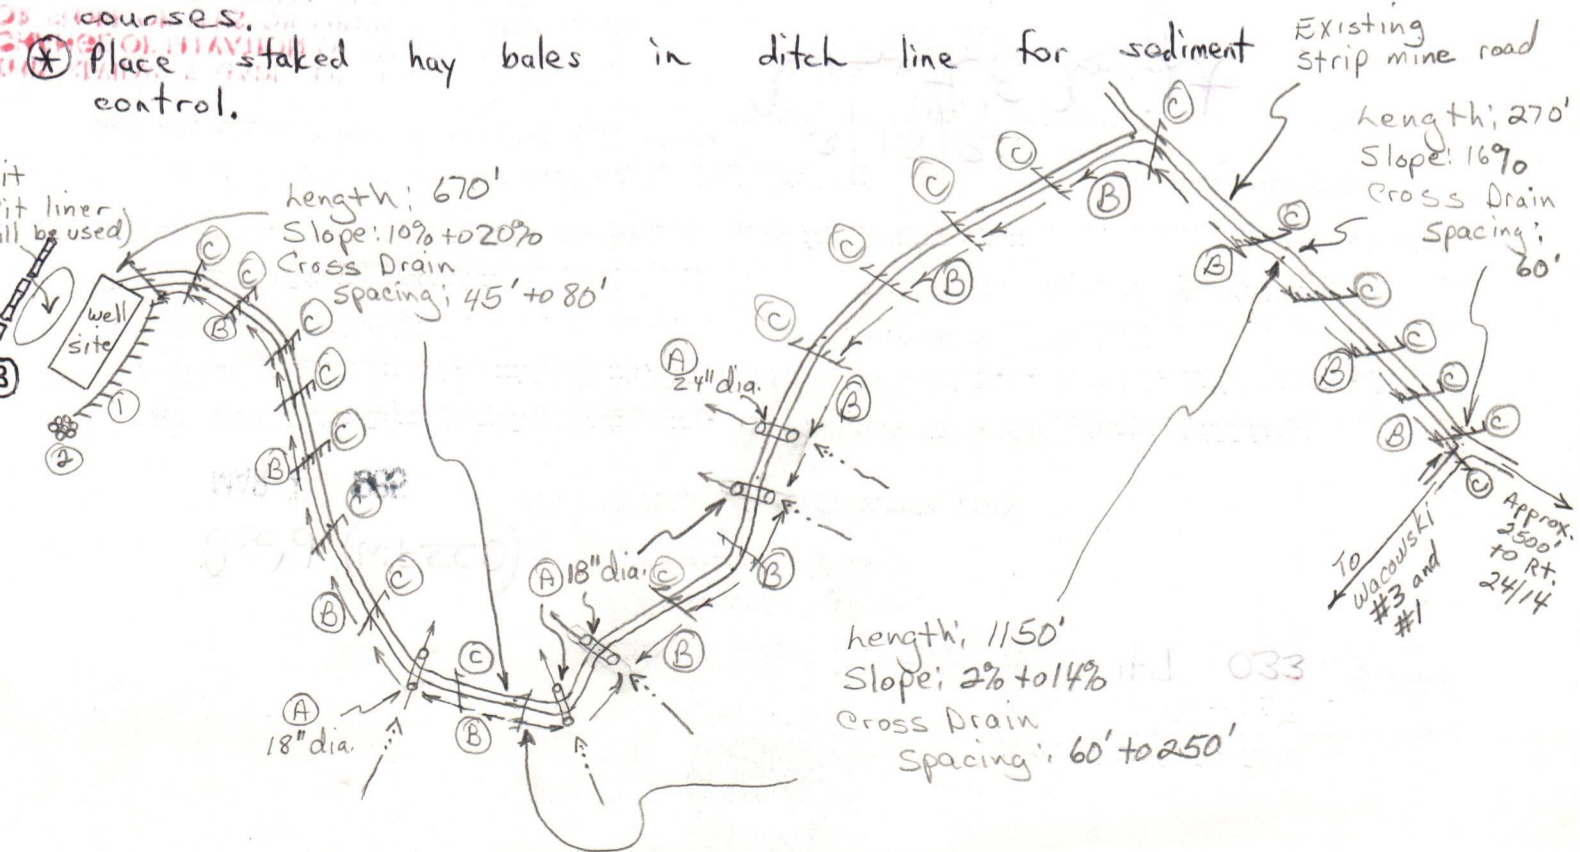 courses.
* Place staked hay bales in ditch line for sediment
control.
Existing
Strip mine road
Length: 270'
Slope: 16%
Cross Drain
Spacing:
60'
it
it liner
ll be used)
Length: 670'
Slope: 10% to 20%
Cross Drain
Spacing: 45' to 80'
well
site
B
1
2
C
C
B
C
C
C
B
C
C
B
A
18" dia.
C
B
A 18" dia.
C
B
B
A
24" dia.
B
C
C
B
C
B
C
B
C
C
B
C
C
B
C
B
C
C
Length: 1150'
Slope: 2% to 14%
Cross Drain
Spacing: 60' to 250'
To
Wacowski
#3 and
#1
Approx.
2500'
to Rt.
24/14
033